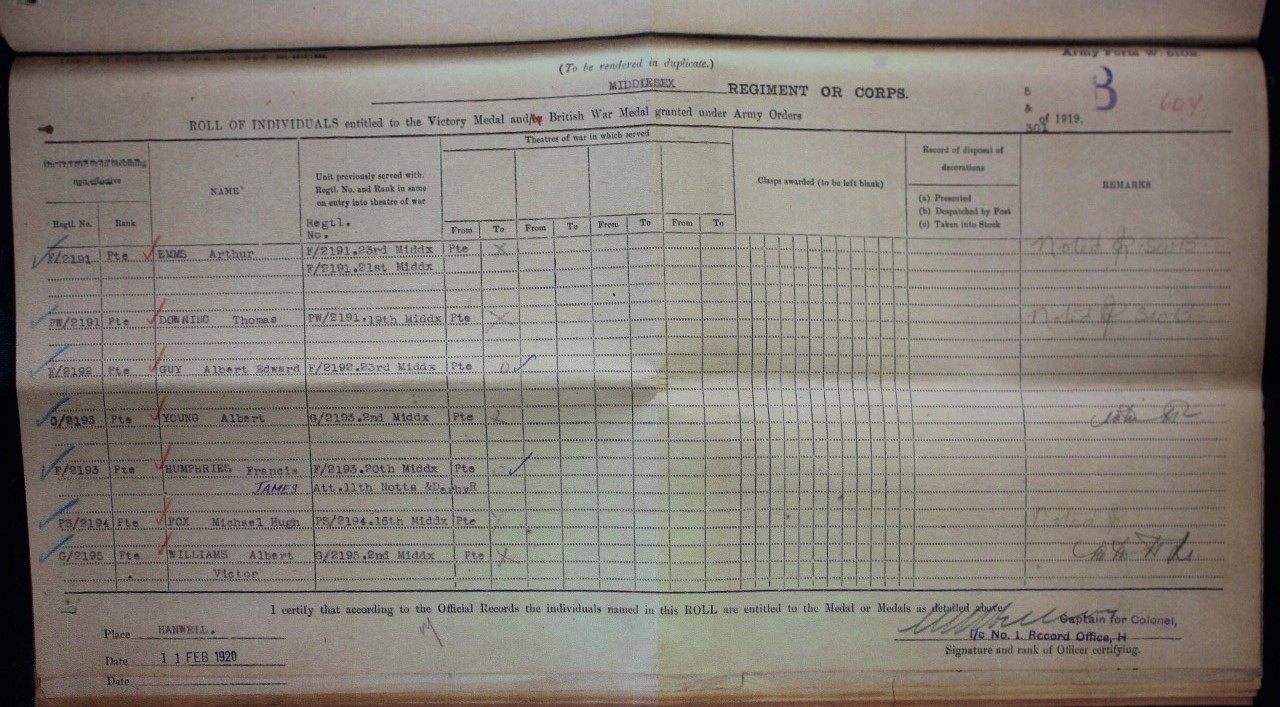 Army Form W. 5102.
(To be rendered in duplicate.)
MIDDLESEX REGIMENT OR CORPS.
B
604
ROLL OF INDIVIDUALS entitled to the Victory Medal and/or British War Medal granted under Army Orders 301 of 1919.
non-effective
Regtl. No.
Rank
NAME
Unit previously served with.
Regtl. No. and Rank in same
on entry into theatre of war
Regtl.
No.
Theatres of war in which served
From To From To From To From To
Clasps awarded (to be left blank)
Record of disposal of
decorations
(a) Presented
(b) Despatched by Post
(c) Taken into Stock
REMARKS
F/2191 Pte EMMS Arthur F/2191.23rd Middx Pte X Noted SWB
F/2191.21st Middx
PW/2191 Pte DOWNING Thomas PW/2191.19th Middx Pte X Noted SWB
F/2192 Pte GUY Albert Edward F/2192.23rd Middx Pte
G/2193 Pte YOUNG Albert G/2193.2nd Middx Pte X
F/2193 Pte HUMPHRIES Francis F/2193.20th Middx Pte
JAMES Att.11th Notts &DerbyR
PS/2194 Pte FOX Michael Hugh PS/2194.16th Middx Pte X Noted
G/2195 Pte WILLIAMS Albert G/2195.2nd Middx Pte X
Victor
I certify that according to the Official Records the individuals named in this ROLL are entitled to the Medal or Medals as detailed above
Captain for Colonel,
I/c No. 1. Record Office, H
Signature and rank of Officer certifying.
Place HANWELL.
Date 11 FEB 1920
Date